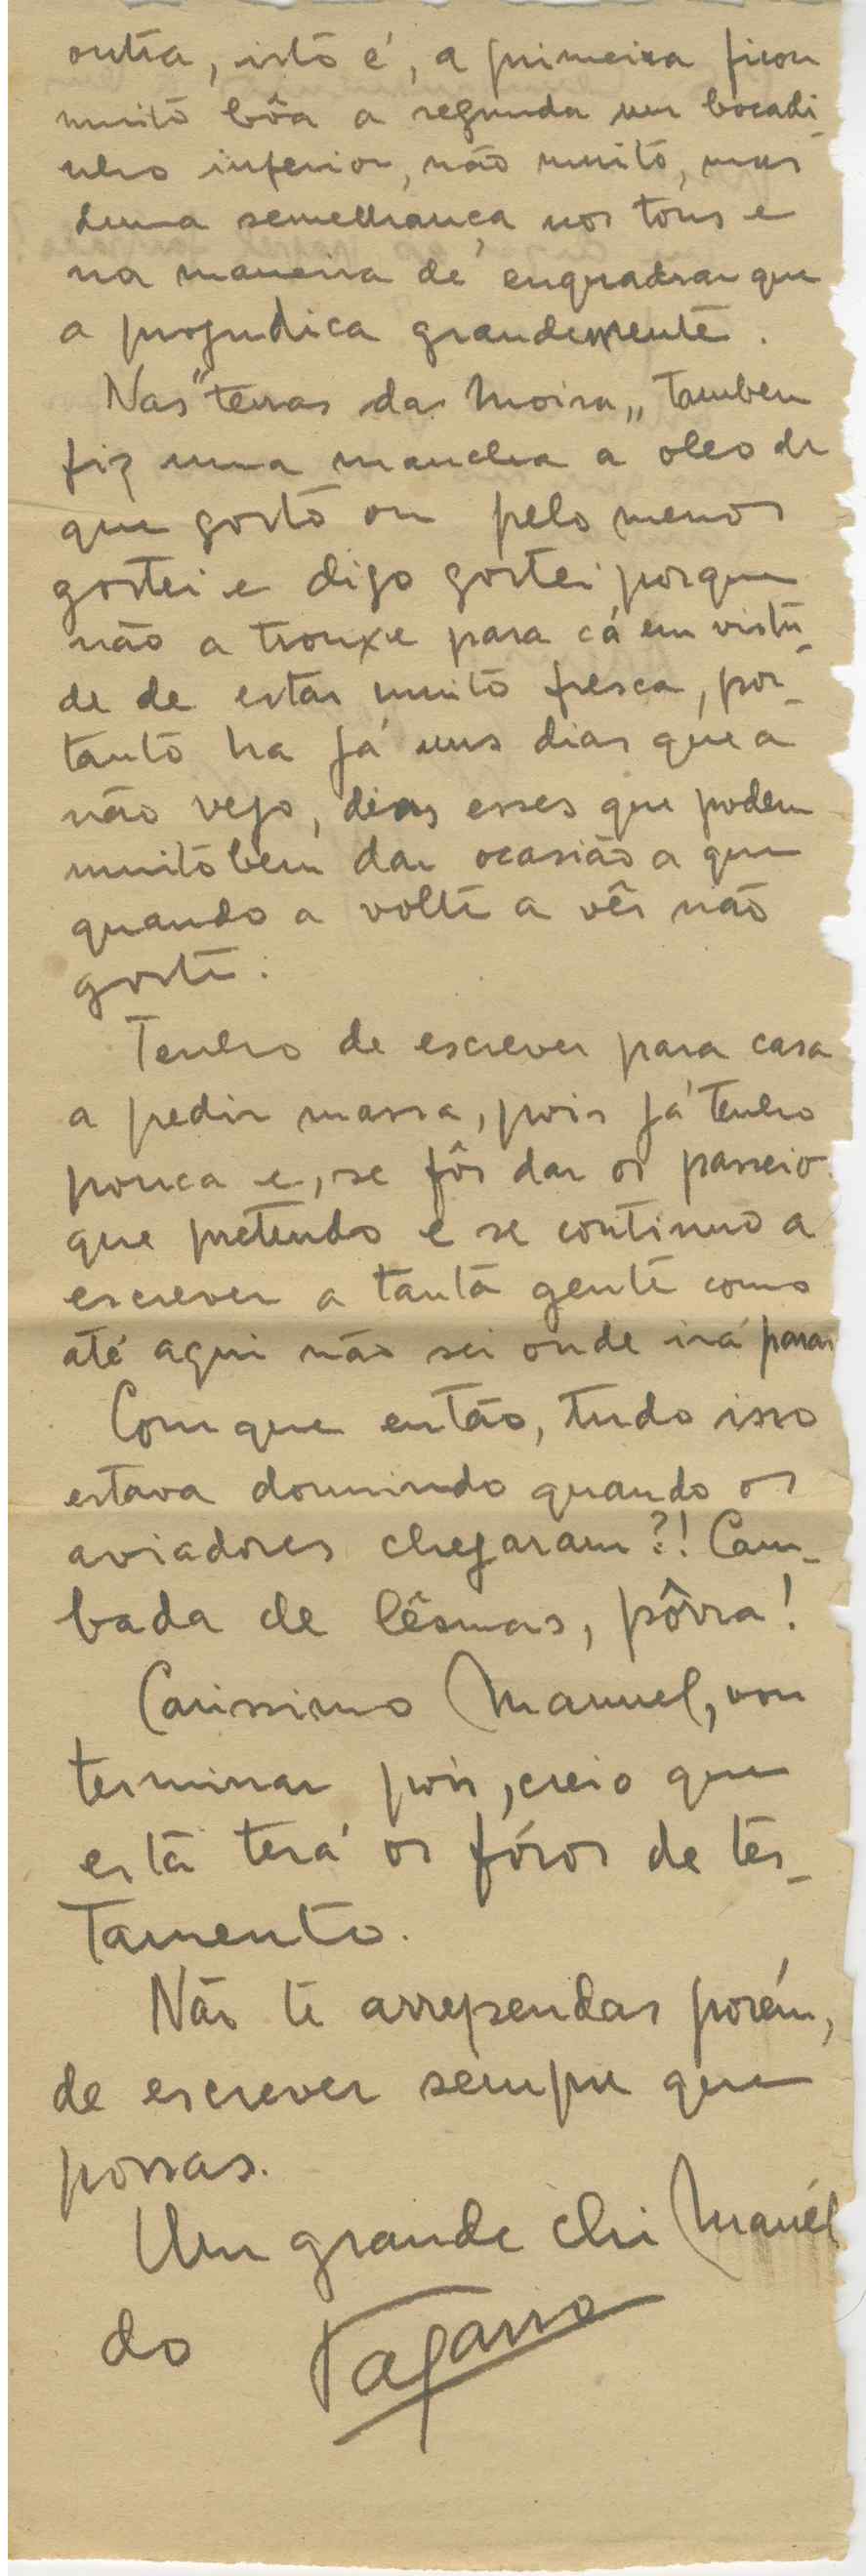 outra, isto é, a primeira ficou
muito bôa a segunda um bocadi-
nho inferior, não muito, mas
duma semelhança nos tons e
na maneira de enquadrar que
a projudica grandemente.
Nas "terras da Moira„ tambem
fiz uma mancha a oleo de
que gosto ou pelo menos
gostei e digo gostei porque
não a trouxe para cá em virtu-
de de estar muito fresca, por-
tanto ha já uns dias que a
não vejo, dias esses que podem
muito bem dar ocasião a que
quando a volte a vêr não
goste.
Tenho de escrever para casa
a pedir massa, pois já tenho
pouca e, se fôr dar os passeios
que pretendo e se continuo a
escrever a tanta gente como
até aqui não sei onde irá parar
Com que então, tudo isso
estava dormindo quando os
aviadores chegaram?! Cam-
bada de lêsmas, pôrra!
Carissimo Manuel, vou
terminar pois, creio que
esta terá os fóros de tes-
tamento.
Não te arrependas porém,
de escrever sempre que
possas.
Um grande chi Manél
do